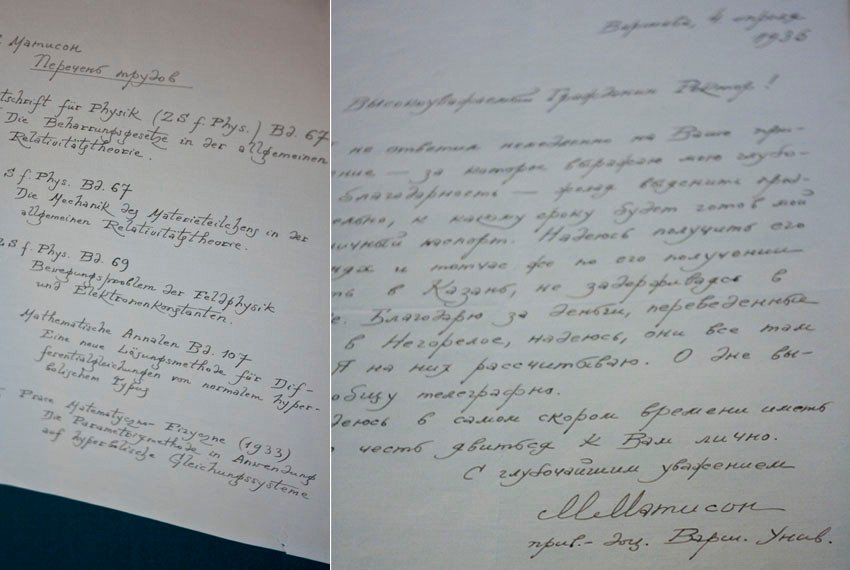 Матисон
Перечень трудов
tschrift für Physik (ZS f. Phys.) Bd. 67
Die Beharrungsgesetze in der allgemeinen
Relativitätstheorie.
S f. Phys. Bd. 67
Die Mechanik des Materieteilchens in der
allgemeinen Relativitätstheorie.
ZS f. Phys. Bd. 69
Bewegungsproblem der Feldphysik
und Elektronenkonstanten.
Mathematische Annalen Bd. 107
Eine neue Lösungsmethode für Dif-
ferentialgleichungen von normalem hyper-
bolischem Typus
Prace Matematyczno-Fizyczne (1933)
Die Parametrixmethode in Anwendung
auf hyperbolische Gleichungssysteme
Варшава, 4 апреля
1936
Высокоуважаемый Гражданин Ректор!
не ответил немедленно на Ваше при-
ение — за которое выражаю мою глубо-
благодарность — желая выяснить пред-
ельно, к какому сроку будет готов мой
ничный паспорт. Надеюсь получить его
и тотчас же по его получении
ть в Казань, не задерживаясь в
е. Благодарю за деньги, переведенные
в Негорелое, надеюсь, они все там
Я на них рассчитываю. О дне вы-
общу телеграфно.
деюсь в самом скором времени иметь
честь явиться к Вам лично.
С глубочайшим уважением
М. Матисон
прив.-доц. Варш. Унив.